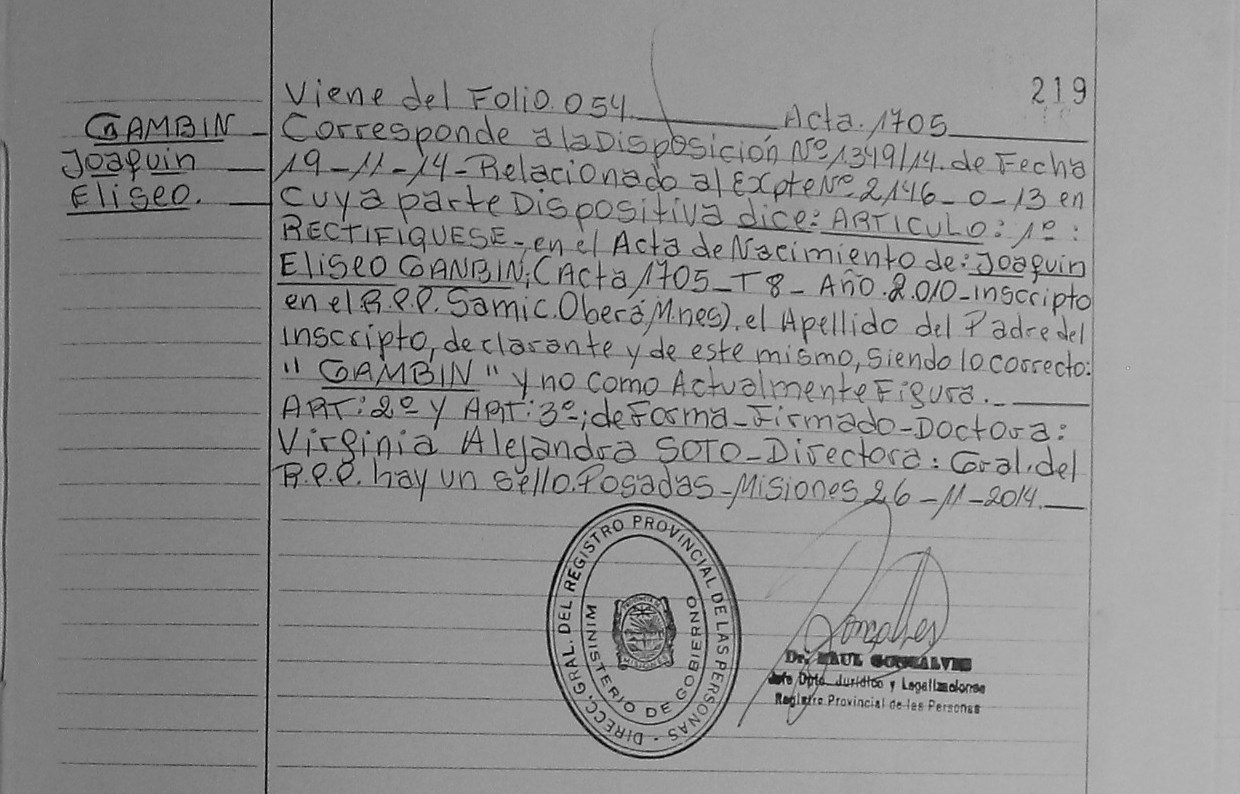 219
Viene del Folio. 054. Acta. 1705
GAMBIN
Joaquin
Eliseo.
Corresponde a la Disposición Nº 1349/14. de Fecha
19-11-14- Relacionado al Expte Nº 2146-0-13 en
Cuya parte Dispositiva dice: ARTICULO: 1º:
RECTIFIQUESE-en el Acta de Nacimiento de: Joaquin
Eliseo GANBIN; (Acta 1705-T8-Año.2.010-inscripto
en el R.P.P. Samic. Oberá, Mnes), el Apellido del Padre del
inscripto, declarante y de este mismo, siendo lo correcto:
"GAMBIN" y no como Actualmente Figura.-
ART: 2º y ART: 3º; de Forma-Firmado-Doctora:
Virginia Alejandra SOTO-Directora: Gral. del
R.P.P. hay un sello. Posadas-Misiones 26-11-2014.
DIRECC. GRAL. DEL REGISTRO PROVINCIAL DE LAS PERSONAS -
MINISTERIO DE GOBIERNO
Dr. RAUL GONSALVES
Jefe Dpto. Jurídico y Legalizaciones
Registro Provincial de las Personas